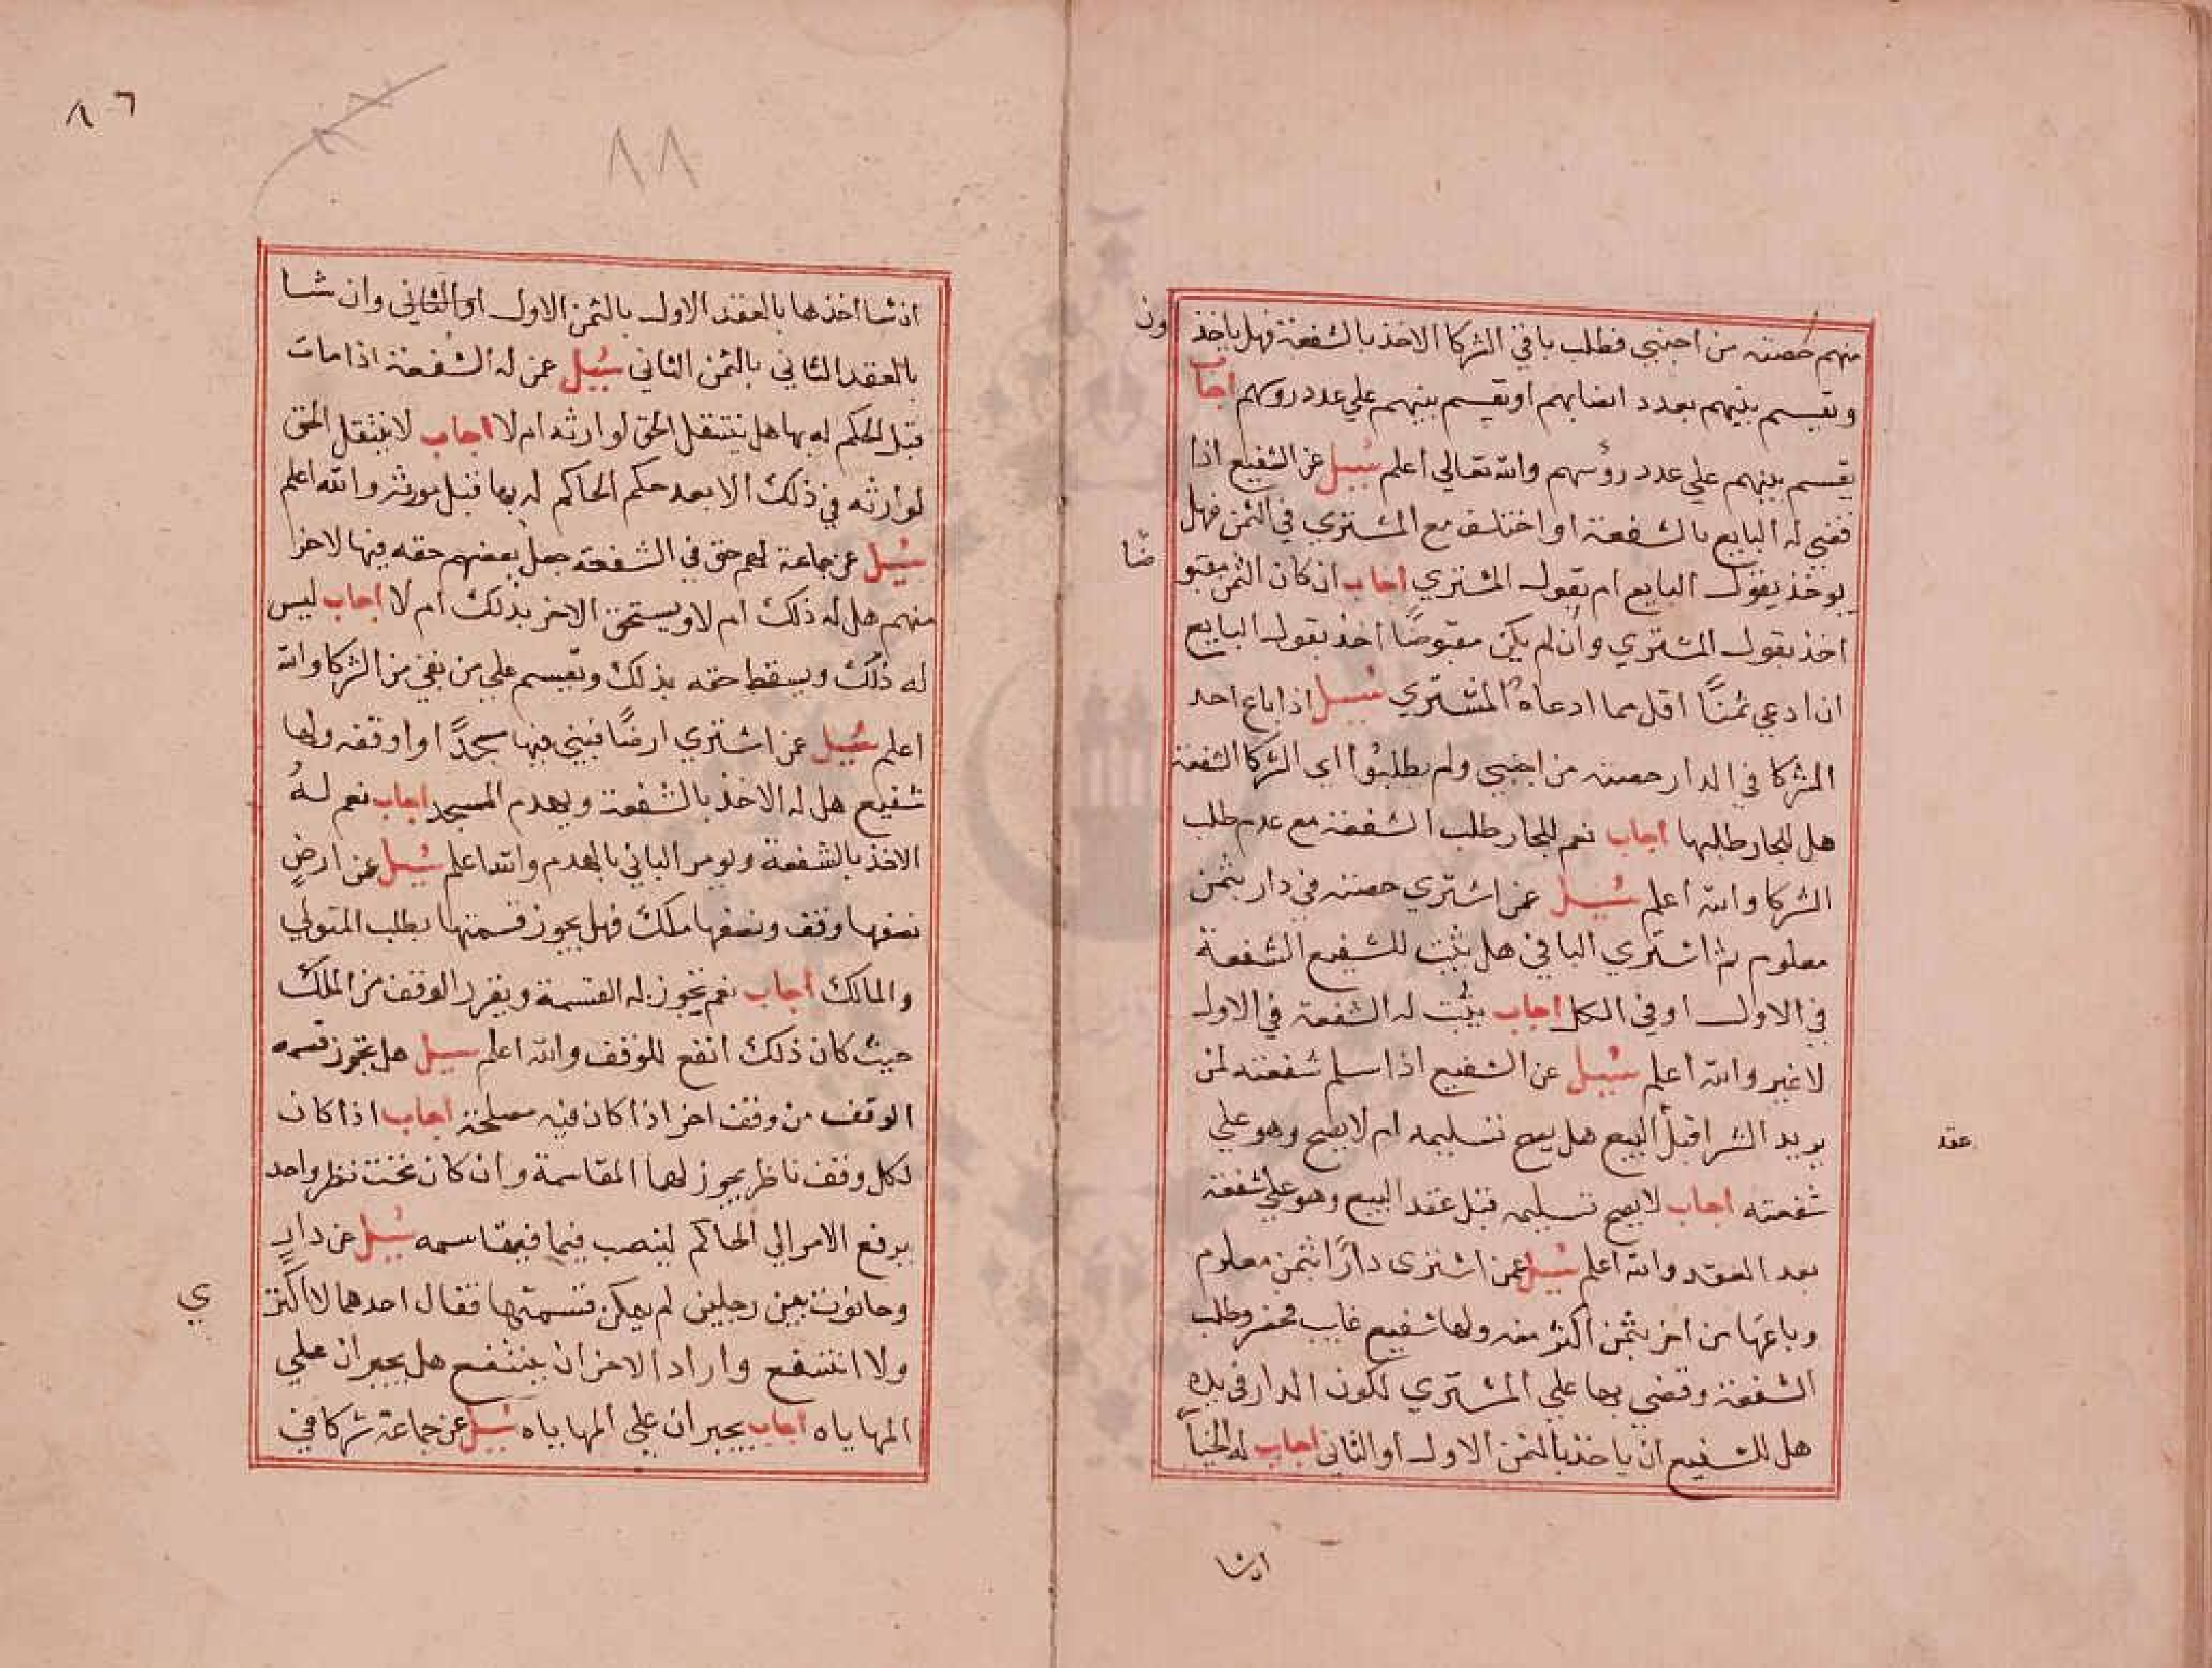 منهم حصته من اجنبي فطلب باقي الشركا الاخذ بالشفعة فهل ياخذ
ون
وتقسم بينهم بعدد انصابهم او تقسم بينهم علي عدد روسهم اجاب
يقسم بينهم علي عدد رؤسهم والله تعالي اعلم سُيل عن الشفيع اذا
قضي له البايع بالشفعة او اختلف مع المشتري في الثمن فهل
يوخذ بقول البايع ام بقول المشتري اجاب ان كان الثمن مقبو
ضًا
اخذ بقول المشتري وان لم يكن مقبوضًا اخذ بقول البايع
ان ادعي ثمنًا اقل مما ادعاه المشتري سُيل اذا باع احد
الشركا في الدار حصته من اجنبي ولم يطلبوا اي الشركا الشفعة
هل للجار طلبها اجاب نعم للجار طلب الشفعة مع عدم طلب
الشركا والله اعلم سُيل عمن اشتري حصته في دار بثمن
معلوم ثم اشتري الباقي هل يثبت للشفيع الشفعة
في الاول او في الكل اجاب يثبت له الشفعة في الاول
لا غير والله اعلم سُيل عن الشفيع اذا سلم شفعته لمن
يريد الشرا قبل البيع هل يصح تسليمه ام لا يصح وهو علي
عقد
شفعته اجاب لا يصح تسليمه قبل عقد البيع وهو علي شفعته
بعد العقد والله اعلم سُيل عمن اشتري دارًا بثمن معلوم
وباعها من اخر بثمن اكثر منه ولها شفيع غايب فحضر وطلب
الشفعة وقضي بها علي المشتري لكون الدار في يده
هل للشفيع ان ياخذ بالثمن الاول او الثاني اجاب له الخيا
ان شا
٨٦
٨٨
ان شا اخذها بالعقد الاول بالثمن الاول او الثاني وان شا
بالعقد الثاني بالثمن الثاني سُيل عمن له الشفعة اذا مات
قبل الحكم له بها هل ينتقل الحق لوارثه ام لا اجاب لا ينتقل الحق
لوارثه في ذلك الا بعد حكم الحاكم له بها قبل مورثه والله اعلم
سُيل عن جماعة لهم حق في الشفعة جعل بعضهم حقه فيها لاخر
منهم هل له ذلك ام لا ويستحق الاخر بذلك ام لا اجاب ليس
له ذلك ويسقط حقه بذلك وتقسم علي من بقي من الشركا والله
اعلم سُيل عمن اشتري ارضًا فبني فيها مسجدًا او اوقفه ولها
شفيع هل له الاخذ بالشفعة ويهدم المسجد اجاب نعم له
الاخذ بالشفعة ويومر الباني بالهدم والله اعلم سُيل عن ارض
نصفها وقف ونصفها ملك فهل يجوز قسمتها بطلب المتولي
والمالك اجاب نعم يجوز له القسمة ويفرز الوقف من الملك
حيث كان ذلك انفع للوقف والله اعلم سيل هل يجوز قسمه
الوقف من وقف اخر اذا كان فيه مصلحة اجاب اذا كان
لكل وقف ناظر يجوز لهما المقاسمة وان كان تحت نظر واحد
يرفع الامر الي الحاكم لينصب قيما فيقاسمه سُيل عن دار
وحانوت بين رجلين لم يمكن قسمتها فقال احدهما لا اكتر
ي
ولا انتفع واراد الاخر ان ينتفع هل يجبران علي
المهاياه اجاب يجبران علي المهاياه سُيل عن جماعة شركا في